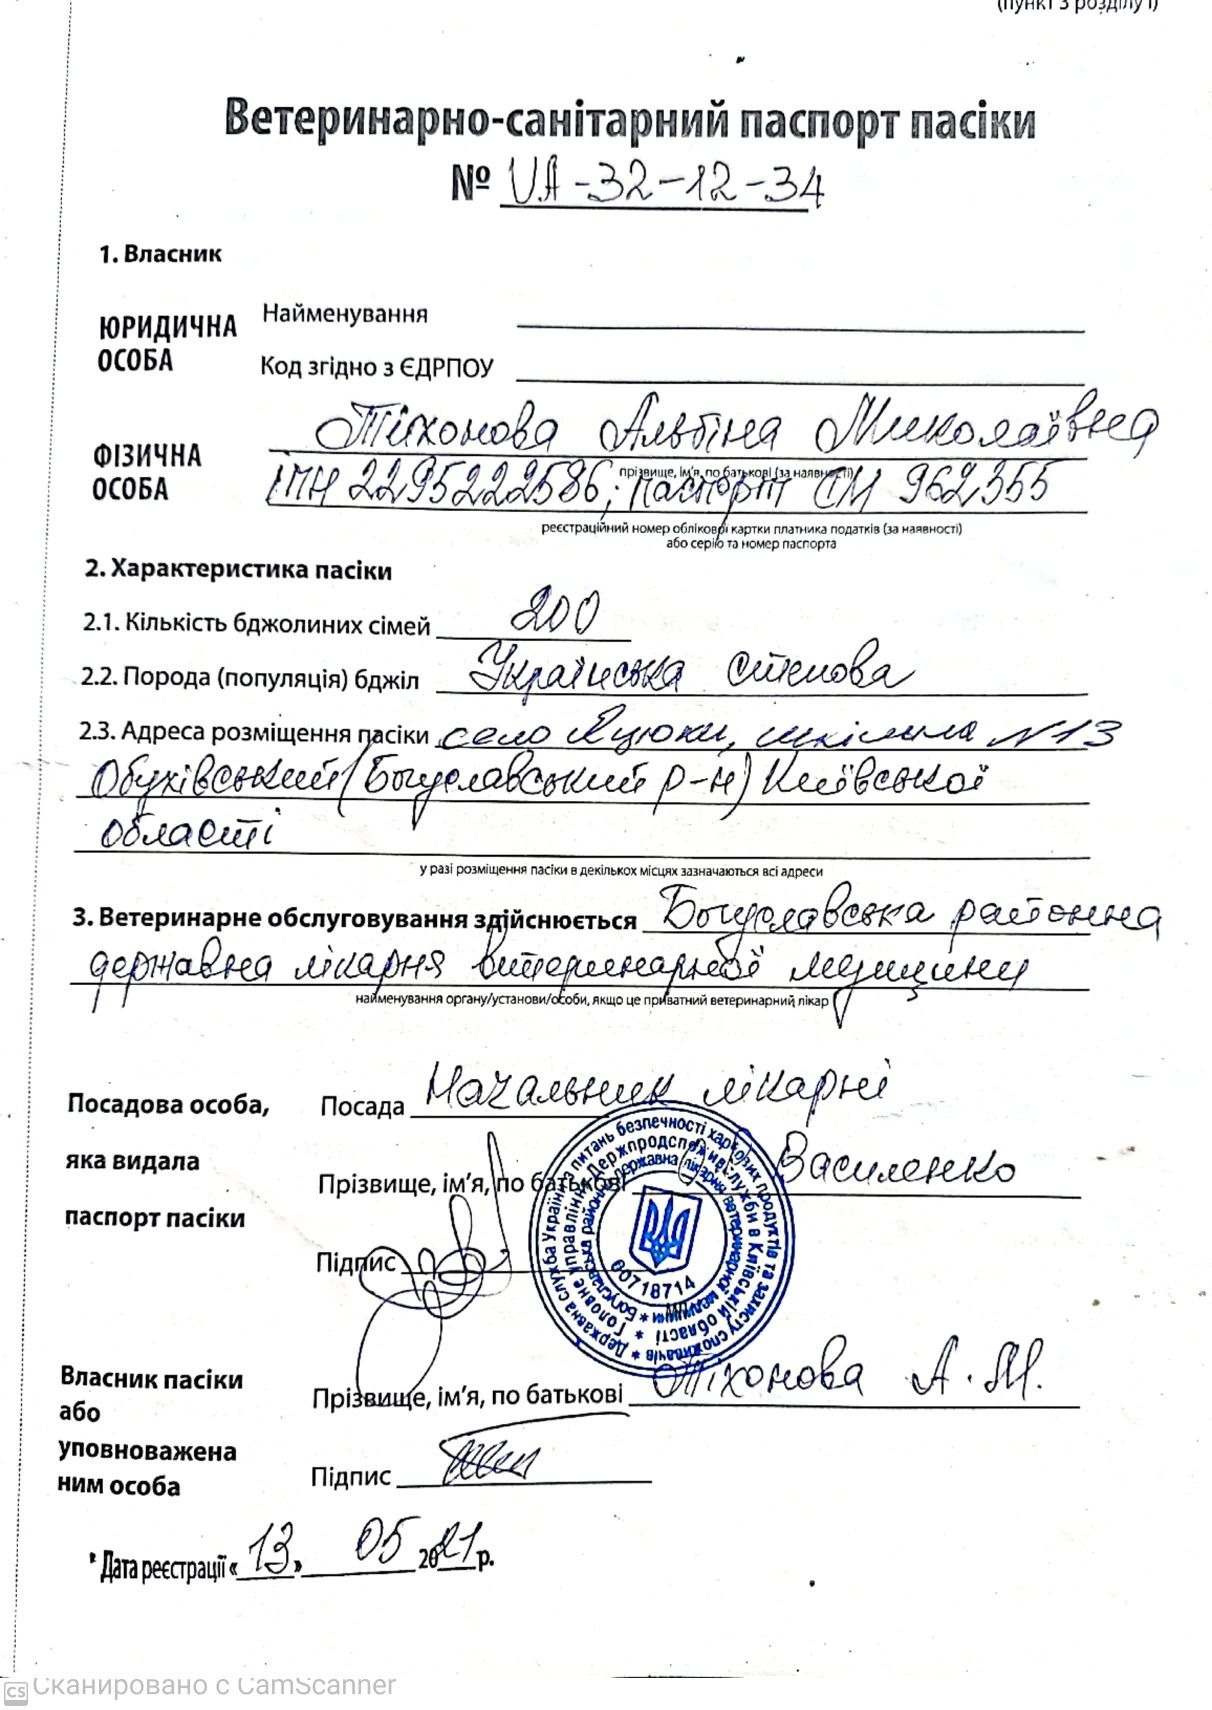 (пункт 3 розділу І)
Ветеринарно-санітарний паспорт пасіки
№ UA-32-12-34
1. Власник
ЮРИДИЧНА ОСОБА
Найменування
Код згідно з ЄДРПОУ
ФІЗИЧНА ОСОБА
Тіхонова Альбіна Миколаївна
прізвище, ім'я, по батькові (за наявності)
ІПН 2295222586; паспорт СМ 962355
реєстраційний номер облікової картки платника податків (за наявності)
або серію та номер паспорта
2. Характеристика пасіки
2.1. Кількість бджолиних сімей 200
2.2. Порода (популяція) бджіл Українська степова
2.3. Адреса розміщення пасіки село Яцюки, шкільна N13
Обухівський (Богуславський р-н) Київської
області
у разі розміщення пасіки в декількох місцях зазначаються всі адреси
3. Ветеринарне обслуговування здійснюється Богуславська районна
державна лікарня витеринарної медицини
найменування органу/установи/особи, якщо це приватний ветеринарний лікар
Посадова особа,
яка видала
паспорт пасіки
Посада Начальник лікарні
Прізвище, ім'я, по батькові Василенко
Підпис
Державна служба України з питань безпечності харчових продуктів та захисту споживачів
Головне управління Держпродспоживслужби в Київській області
Богуславська районна державна лікарня ветеринарної медицини
00718714
Власник пасіки
або
уповноважена
ним особа
Прізвище, ім'я, по батькові Тіхонова А.М.
Підпис
* Дата реєстрації «13» 05 2021 р.
CS Сканировано с CamScanner